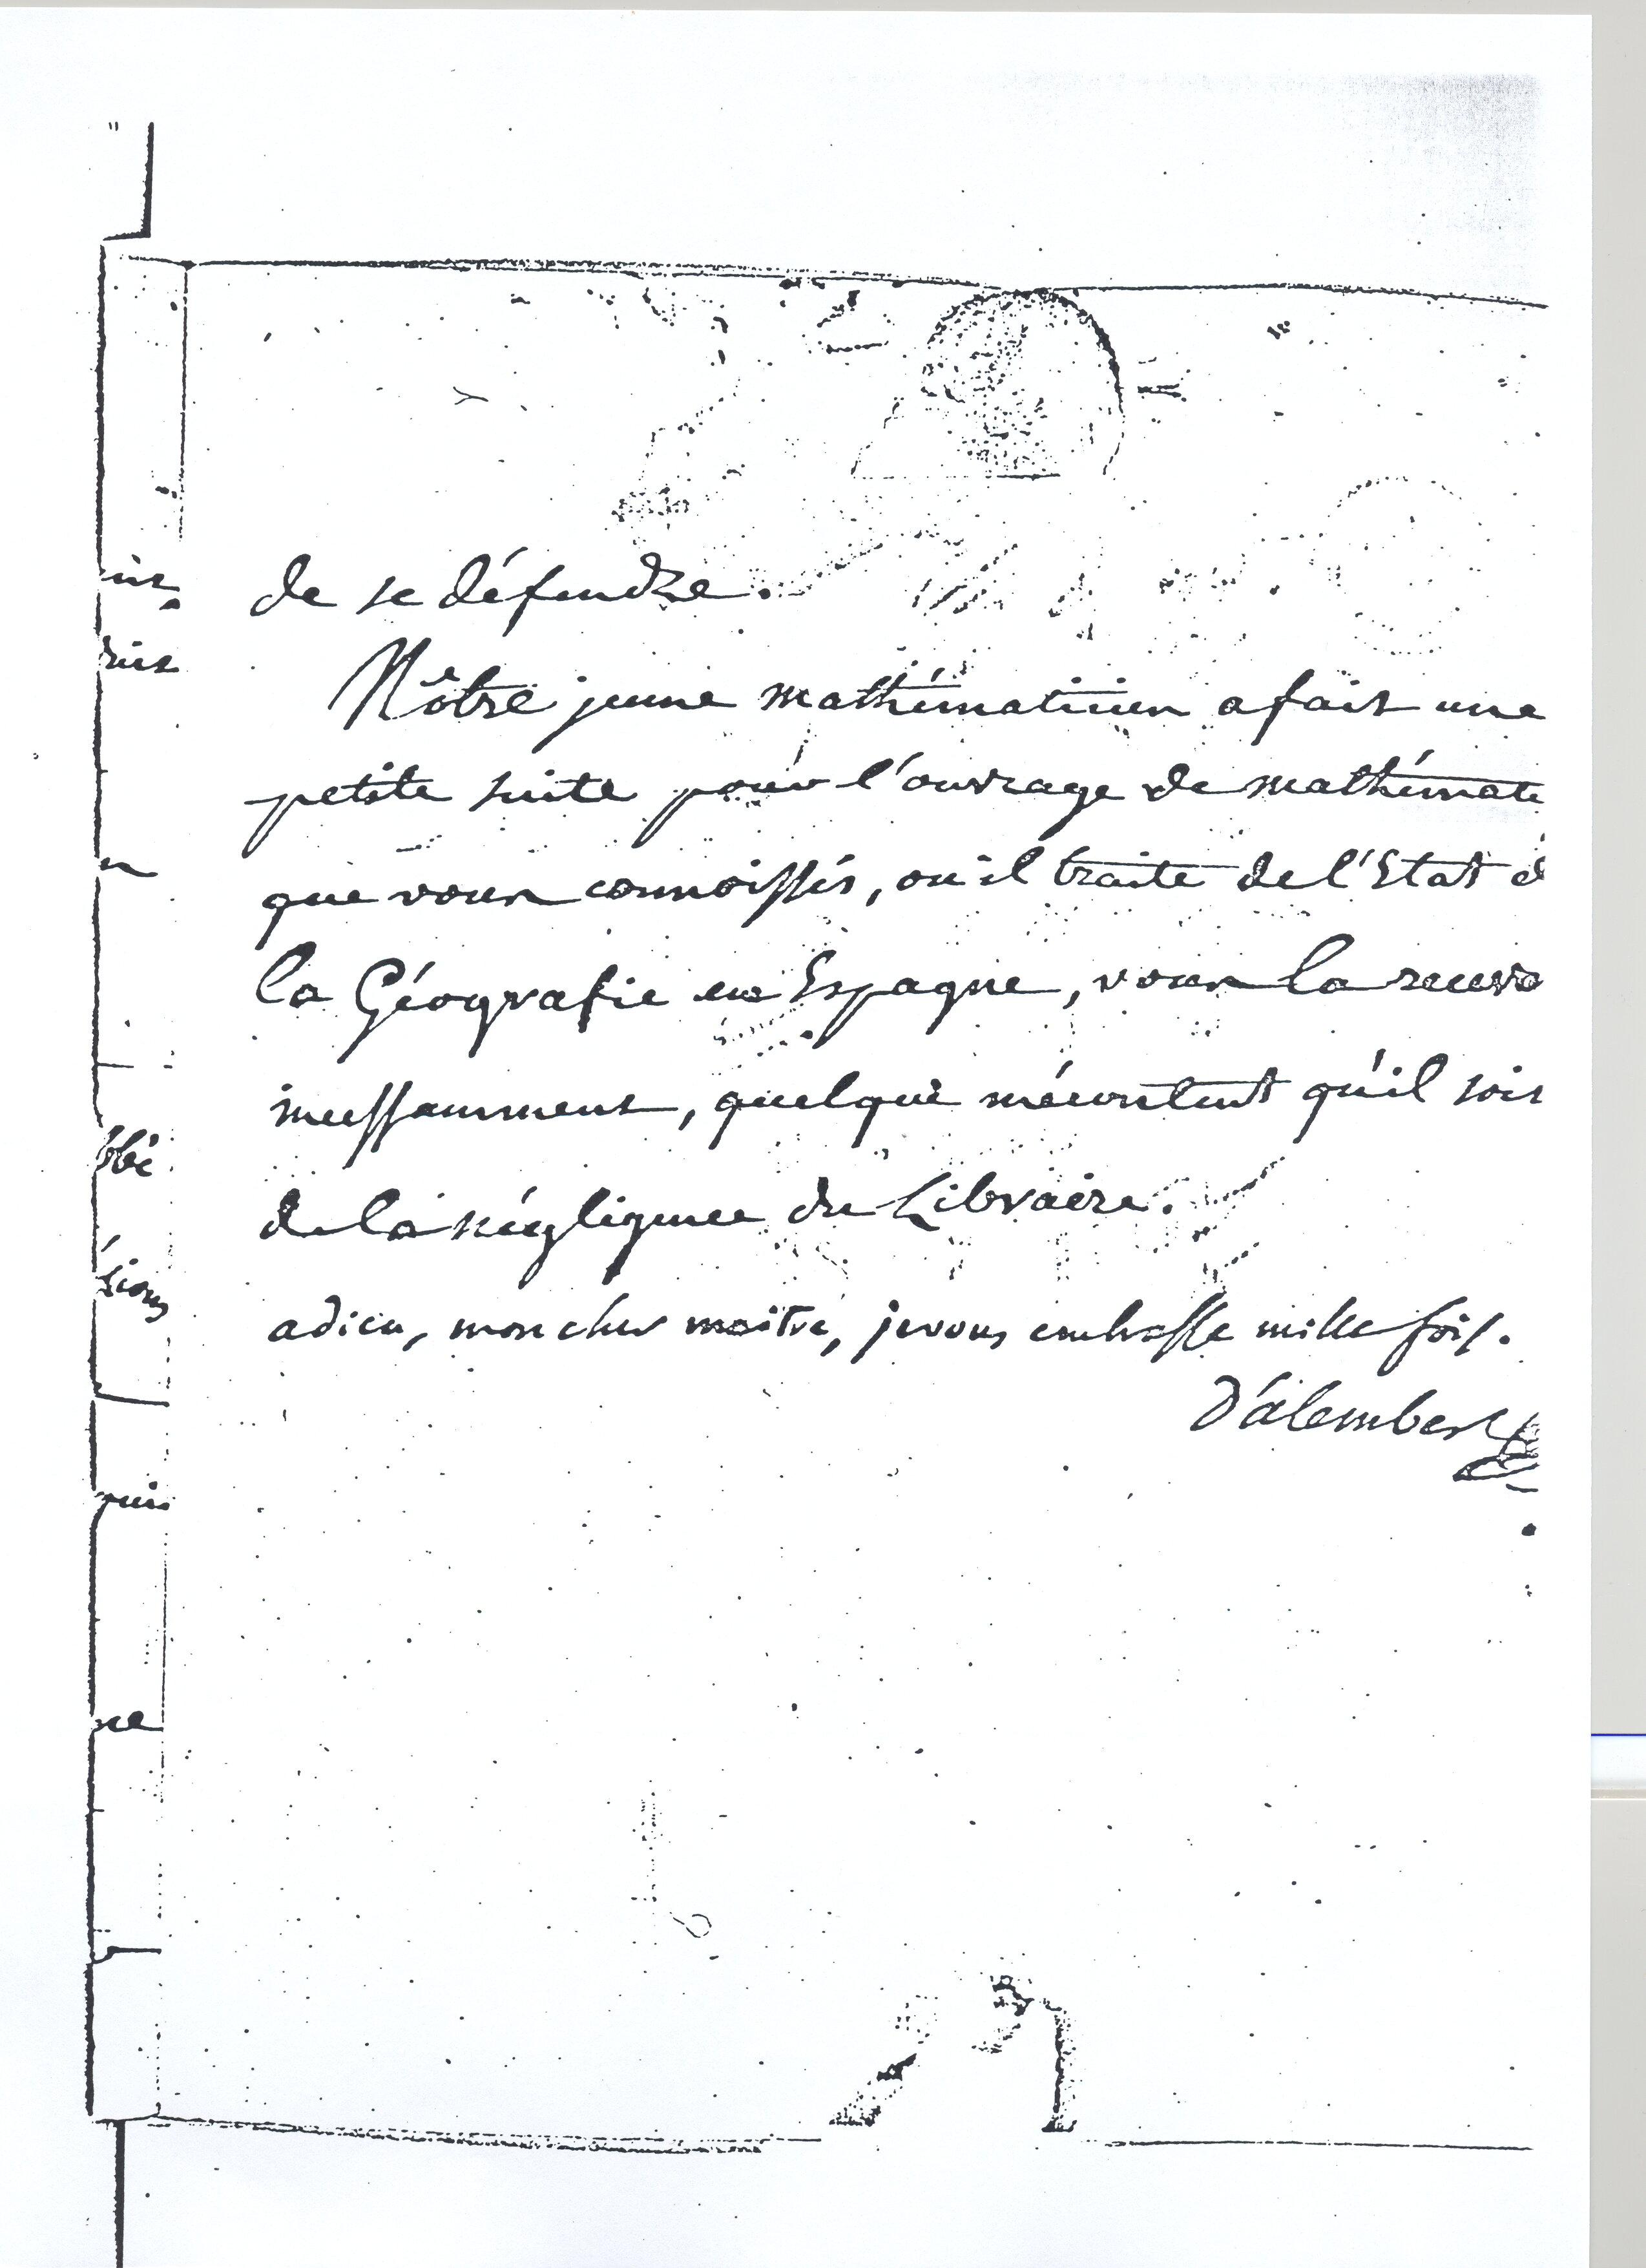 de se défendre.
Nôtre jeune mathématicien a fait une
petite suite pour l'ouvrage de mathémati
que vous connoissés, où il traite de l'Etat d
la Géografie en Espagne, vous la recevr
incessamment, quelque mécontent qu'il soit
de la négligence du Libraire.
adieu, mon cher maître, je vous embrasse mille fois.
D'alembert
bbé
sions
qui
ne